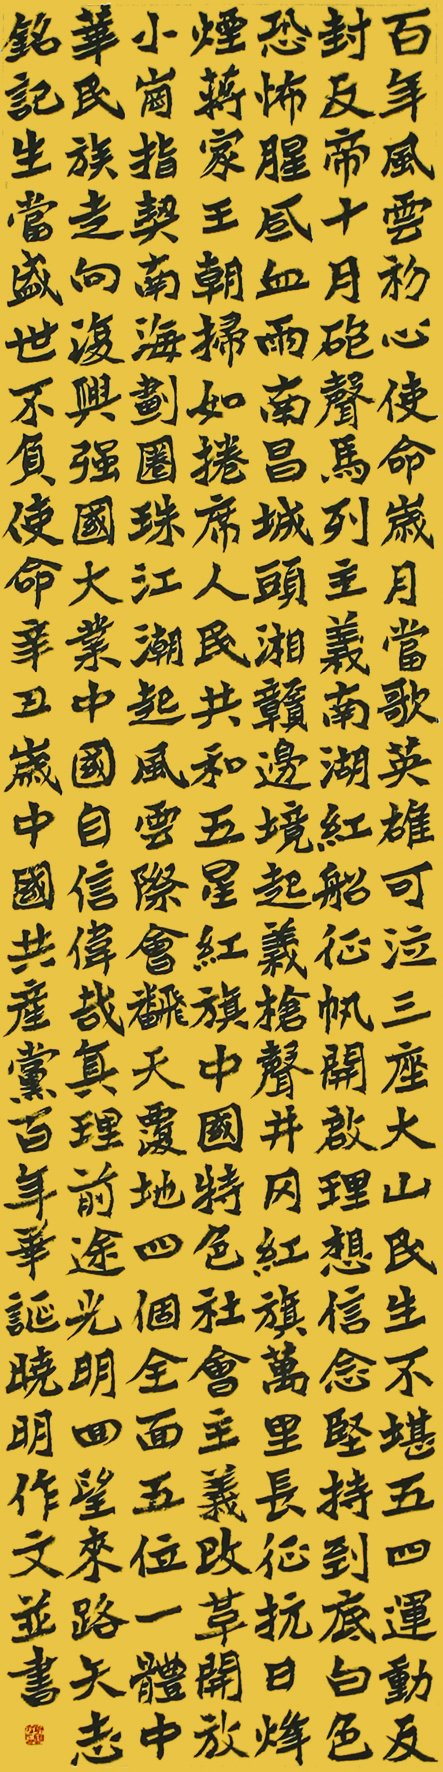 百年風雲初心使命歲月當歌英雄可泣三座大山民生不堪五四運動反
封反帝十月砲聲馬列主義南湖紅船征帆開啟理想信念堅持到底白色
恐怖腥風血雨南昌城頭湘贛邊境起義槍聲井冈紅旗萬里長征抗日烽
煙蔣家王朝掃如捲席人民共和五星紅旗中國特色社會主義改革開放
小崗指契南海劃圈珠江潮起風雲際會飜天覆地四個全面五位一體中
華民族走向復興强國大業中國自信偉哉真理前途光明回望來路矢志
銘記生當盛世不負使命辛丑歲中國共產黨百年華誕曉明作文並書